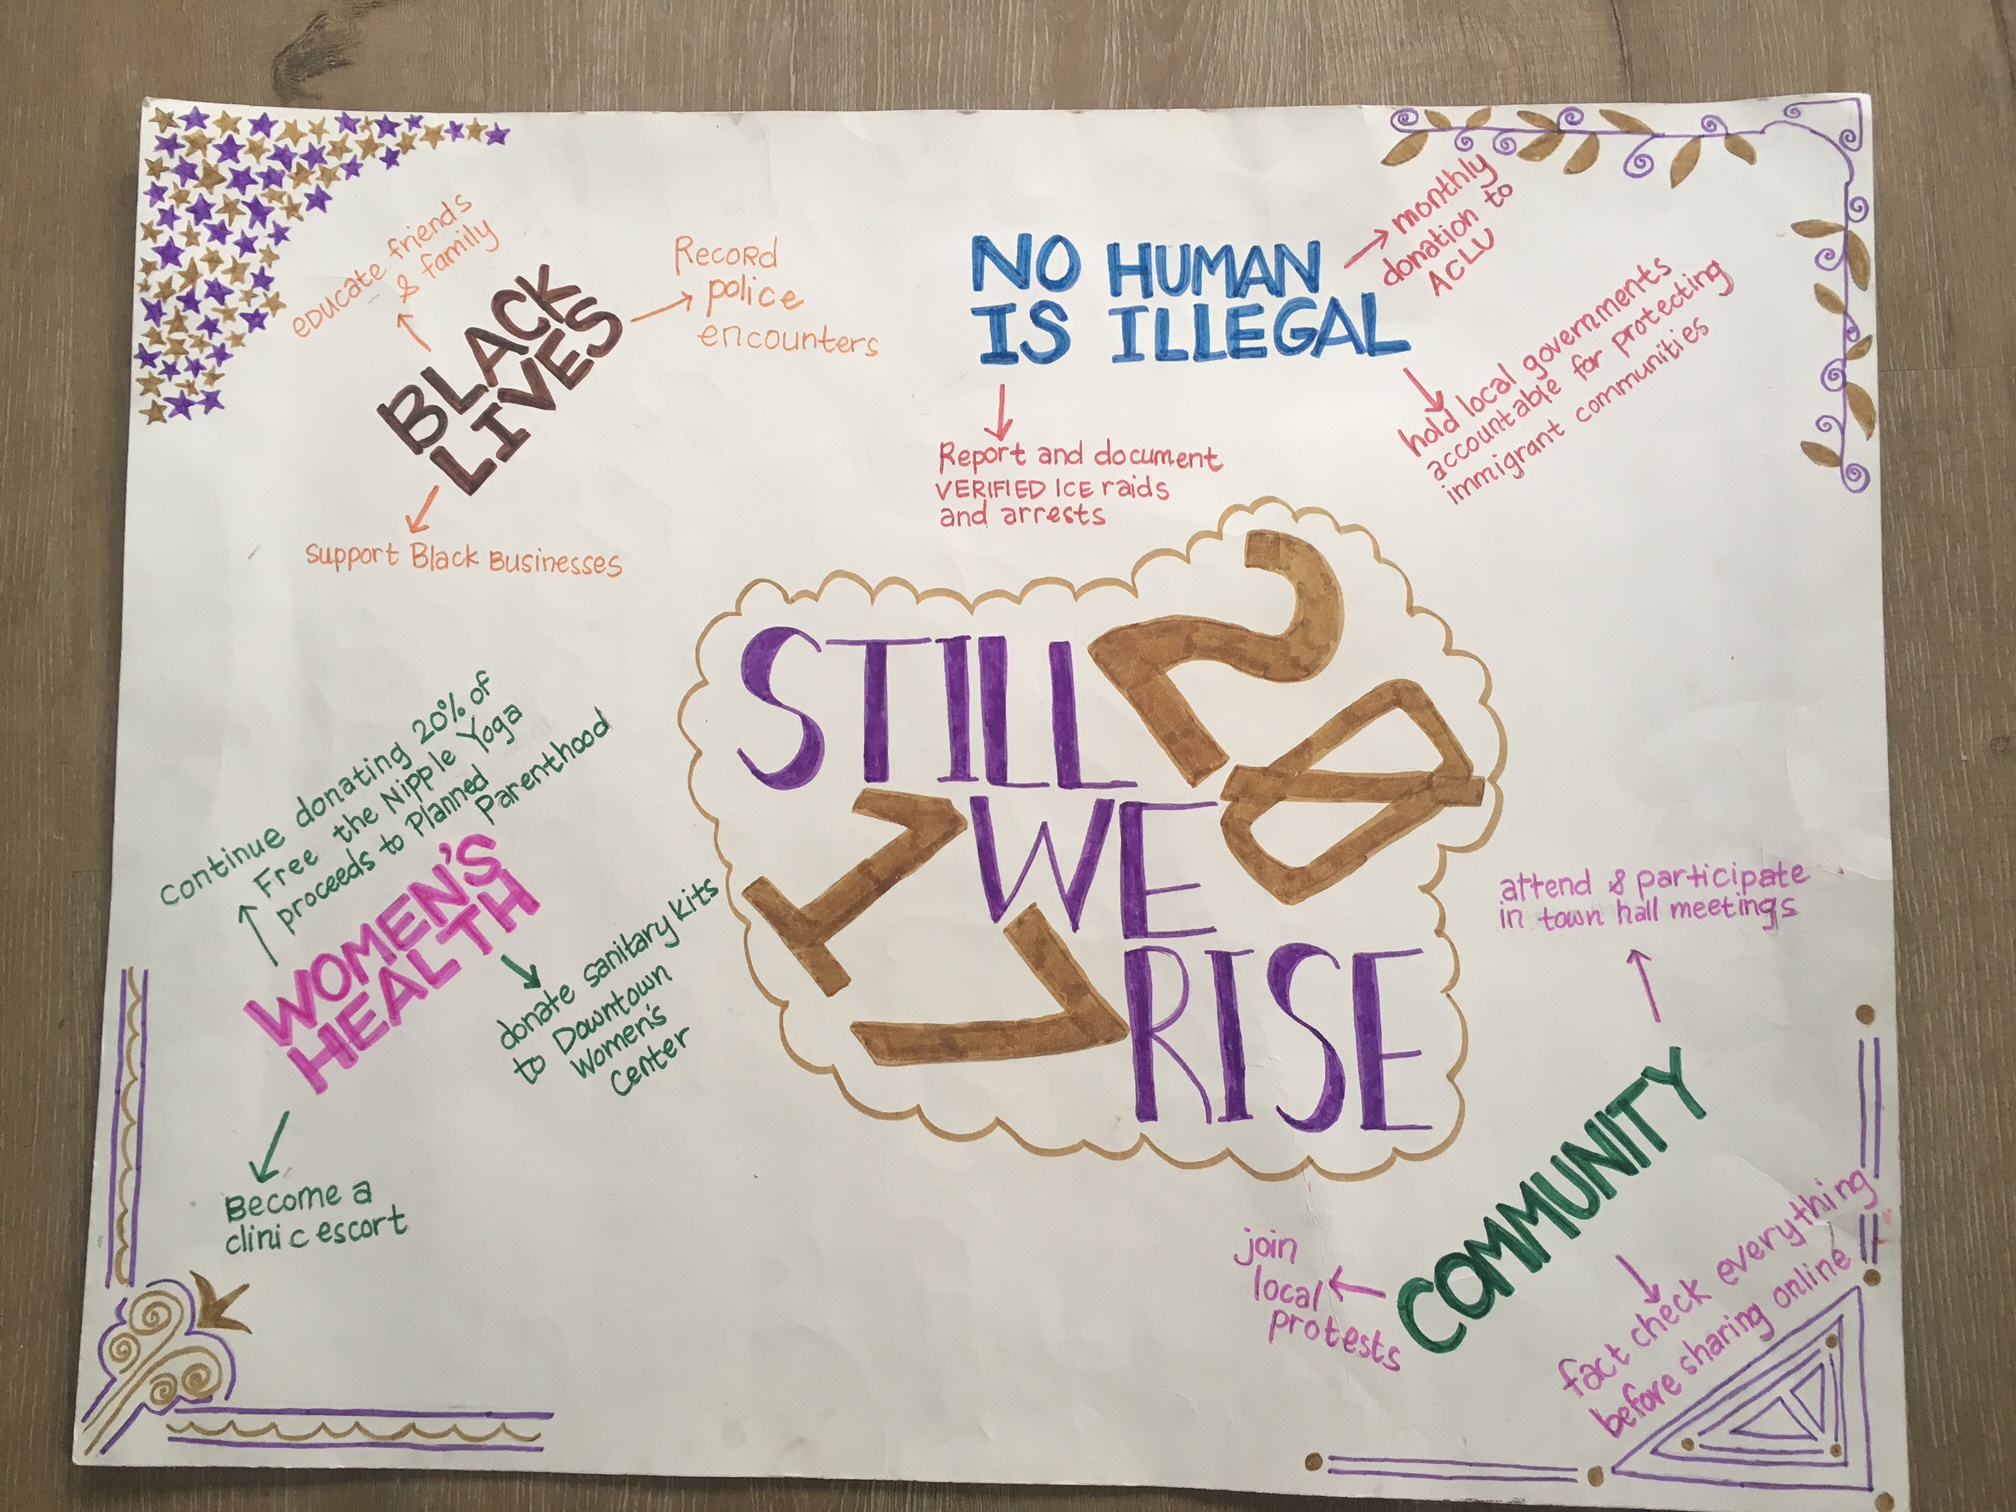 educate friends
& family
BLACK
LIVES
Record
police
encounters
support Black Businesses
NO HUMAN
IS ILLEGAL
monthly
donation to
ACLU
hold local governments
accountable for protecting
immigrant communities
Report and document
VERIFIED ICE raids
and arrests
STILL
WE
RISE
2017
continue donating 20% of
Free the Nipple Yoga
proceeds to Planned
Parenthood
WOMEN'S
HEALTH
donate sanitary kits
to Downtown
Women's
Center
Become a
clinic escort
attend & participate
in town hall meetings
COMMUNITY
join
local
protests
fact check everything
before sharing online